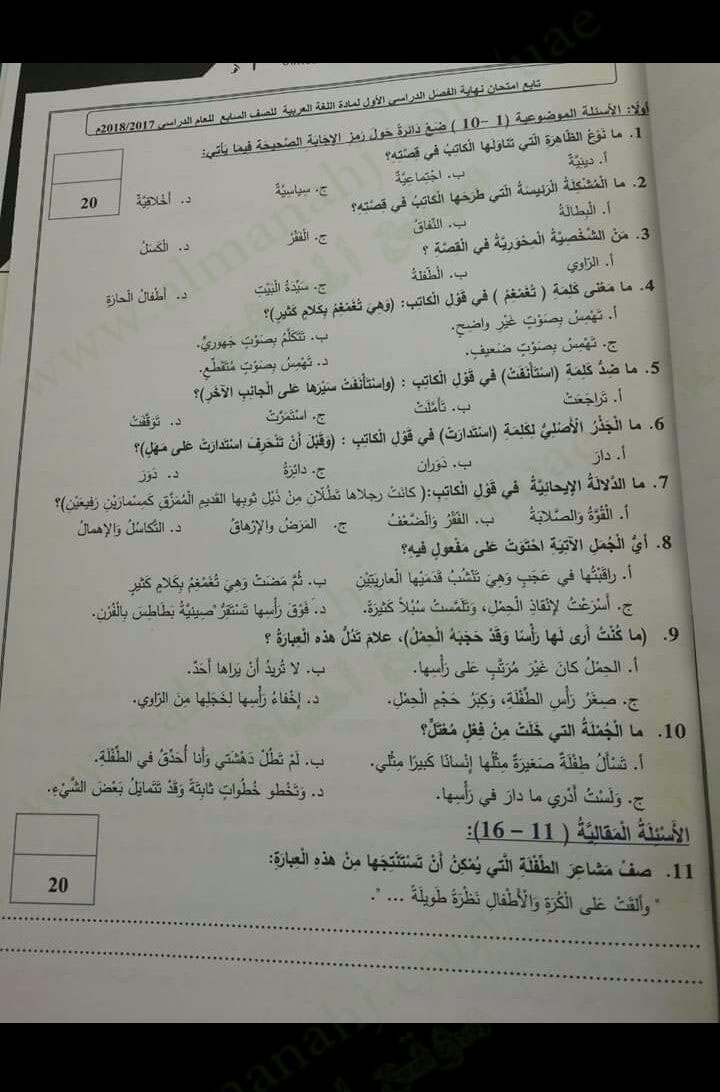 تابع امتحان نهاية الفصل الدراسي الأول لمادة اللغة العربية للصف السابع للعام الدراسي 2018/2017م
أولًا: الأسئلة الموضوعية (1 -10 ) ضَعْ دائرةً حَوْلَ رمزِ الإجابةِ الصَّحيحةِ فيما يَأتي:
20
1. ما نَوْعُ الظّاهرَةِ الّتي تَناوَلَها الْكاتِبُ في قِصَّتِهِ؟
أ. دينِيَّةٌ ب. اجْتِماعِيَّةٌ ج. سِياسِيَّةٌ د. أخْلاقِيَّةٌ
2. ما الْمُشْكِلَةُ الرَّئيسَةُ الَّتي طَرَحَها الْكاتِبُ في قِصَّتِهِ؟
أ. الْبِطالَةُ ب. النِّفاقُ ج. الْفَقْرُ د. الْكَسَلُ
3. مَنْ الشَّخْصِيَّةُ الْمِحْوَرِيَّةُ في الْقِصَّةِ ؟
أ. الرّاوي ب. الطِّفْلَةُ ج. سَيِّدَةُ الْبَيْتِ د. أطْفالُ الْحارَةِ
4. ما مَعْنى كَلِمَةِ ( تُغَمْغِمُ ) في قَوْلِ الْكاتِبِ: (وَهِيَ تُغَمْغِمُ بِكَلامٍ كَثيرٍ)؟
أ. تَهْمِسُ بِصَوْتٍ غَيْرِ واضِحٍ. ب. تَتَكَلَّمُ بِصَوْتٍ جَهورِيٍّ.
ج. تَهْمِسُ بِصَوْتٍ ضَعيفٍ. د. تَهْمِسُ بِصَوْتٍ مُتَقَطِّعٍ.
5. ما ضِدُّ كَلِمَةِ (اسْتَأنَفَتْ) في قَوْلِ الْكاتِبِ : (واسْتَأنَفَتْ سَيْرَها عَلى الْجانِبِ الآخَرِ)؟
أ. تَراجَعَتْ ب. تَأمَّلَتْ ج. اسْتَمَرَّتْ د. تَوَقَّفَتْ
6. ما الْجَذْرُ الْأصْلِيُّ لِكَلِمَةِ (اسْتَدارَتْ) في قَوْلِ الْكاتِبِ : (وَقَبْلَ أنْ تَنْحَرِفَ اسْتَدارَتْ عَلى مَهَلٍ)؟
أ. دارَ ب. دَوَران ج. دائِرَةٌ د. دَوَرَ
7. ما الدَّلالَةُ الإيحائيَّةُ في قَوْلِ الْكاتِبِ:( كانَتْ رِجلاها تَطُلّانِ مِنْ ذَيْلِ ثوبِها القديمِ الْمُمَزَّقِ كَمِسْمارَيْنِ رَفيعَيْنِ)؟
أ. الْقُوَّةُ وَالصَّلابَةُ ب. الفَقْرُ وَالضَّعْفُ ج. المَرَضُ وَالإرْهاقُ د. التَّكاسُلُ وَالإهمالُ
8. أيُّ الْجُمَلِ الآتِيَةِ احْتَوَتْ عَلى مَفْعولٍ فيهِ؟
أ. راقَبْتُها في عَجَبٍ وَهِيَ تَنْشُبُ قَدَمَيْها الْعارِيَتَيْنِ ب. ثُمَّ مَضَتْ وَهِيَ تُغَمْغِمُ بِكَلامٍ كَثيرٍ
ج. أسْرَعْتُ لِإنْقاذِ الْحِمْلِ، وَتَلَمَّسْتُ سُبُلًا كَثيرَةً. د. فَوْقَ رَأسِها تَسْتَقِرُّ صينِيَّةُ بَطاطِسَ بِالْفُرْنِ.
9. (ما كُنْتُ أرى لَها رَأسًا وَقَدْ حَجَبَهُ الْحِمْلُ)، عَلامَ تَدُلُّ هذه الْعِبارَةُ ؟
أ. الحِمْلُ كانَ غَيْرَ مُرَتَّبٍ عَلى رَأسِها. ب. لا تُريدُ أنْ يَراها أحَدٌ.
ج. صِغَرُ رَأسِ الطِّفْلَةِ، وَكِبَرُ حَجْمِ الْحِمْلِ. د. إخْفاءُ رَأسِها لِخَجَلِها مِنَ الرّاوي.
10. ما الْجُمْلَةُ التي خَلَتْ مِنْ فِعْلٍ مُعْتَلٍّ؟
أ. تَسْألُ طِفْلَةٌ صَغيرَةٌ مِثْلُها إنْسانًا كَبيرًا مِثْلي. ب. لَمْ تَطُلْ دَهْشَتي وَأنا أُحَدِّقُ في الطِّفْلَةِ.
ج. وَلَسْتُ أدْري ما دارَ في رَأسِها. د. وَتَخْطو خُطُواتٍ ثابِتَةً وَقَدْ تَتَمايَلُ بَعْضَ الشَّيْءِ.
الأسْئِلَةُ الْمَقالِيَّةُ ( 11 – 16):
20
11. صِفْ مَشاعِرَ الطِّفْلَةِ الَّتي يُمْكِنُ أنْ تَسْتَنْتِجَها مِنْ هذِهِ الْعِبارَةِ:
" وألقَتْ عَلى الْكُرَةِ وَالْأطْفالِ نَظْرَةً طَويلَةً ... ".